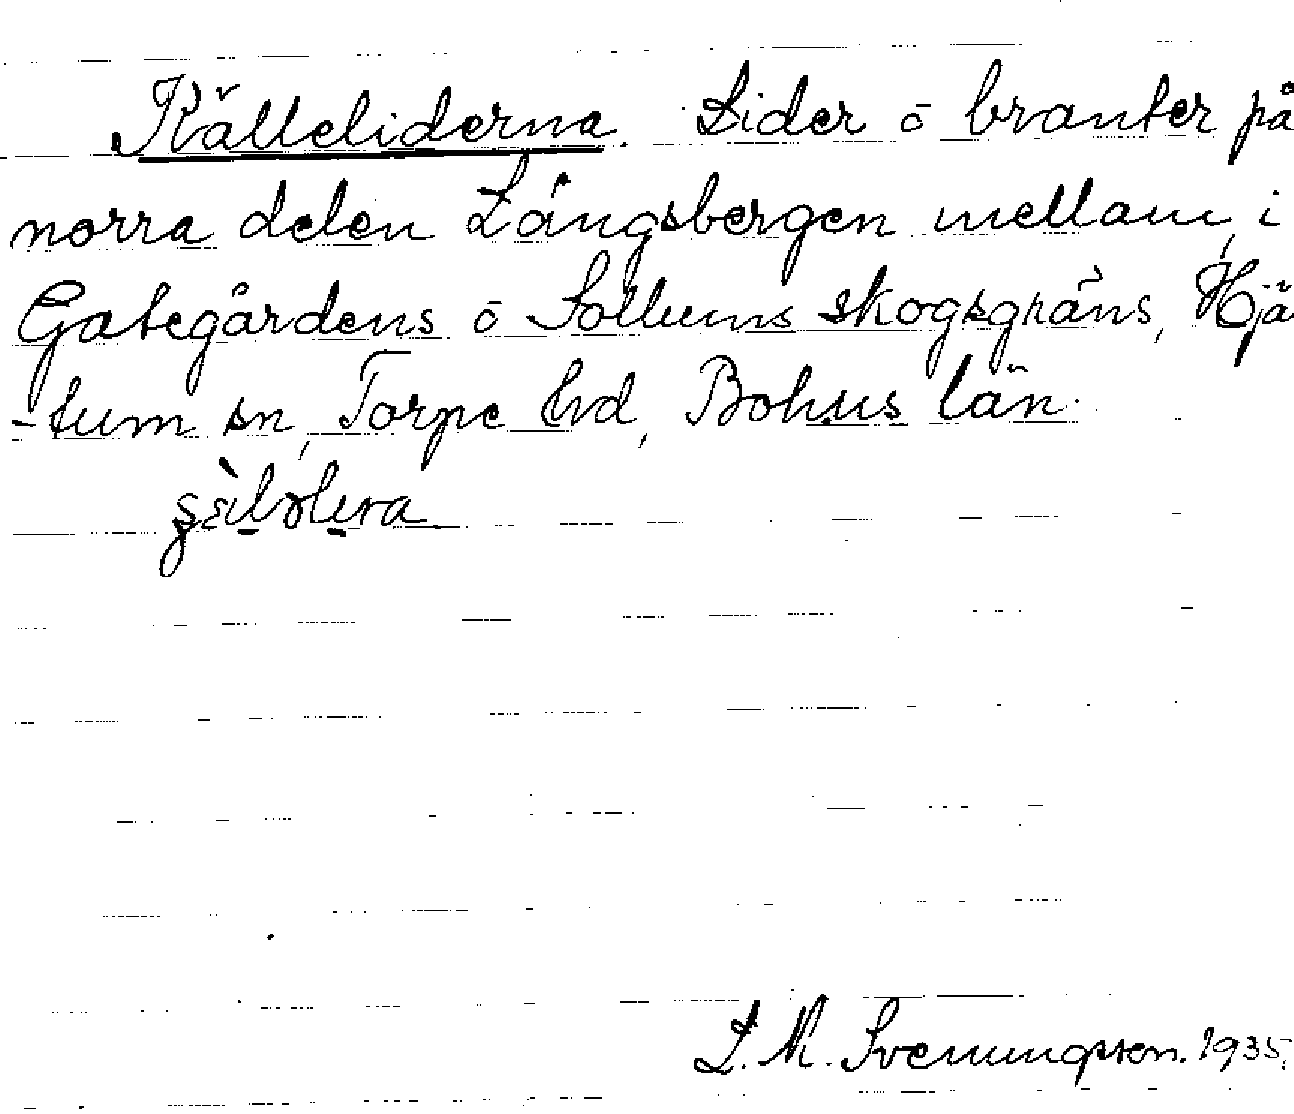 Källeliderna. Lider ō branter på
norra delen Långsbergen mellam, i
Gategårdens ō Sollums skogsgräns, Hjä
-tum sn, Torpe hd, Bohus län.
L. M. Svenungsson. 1935.